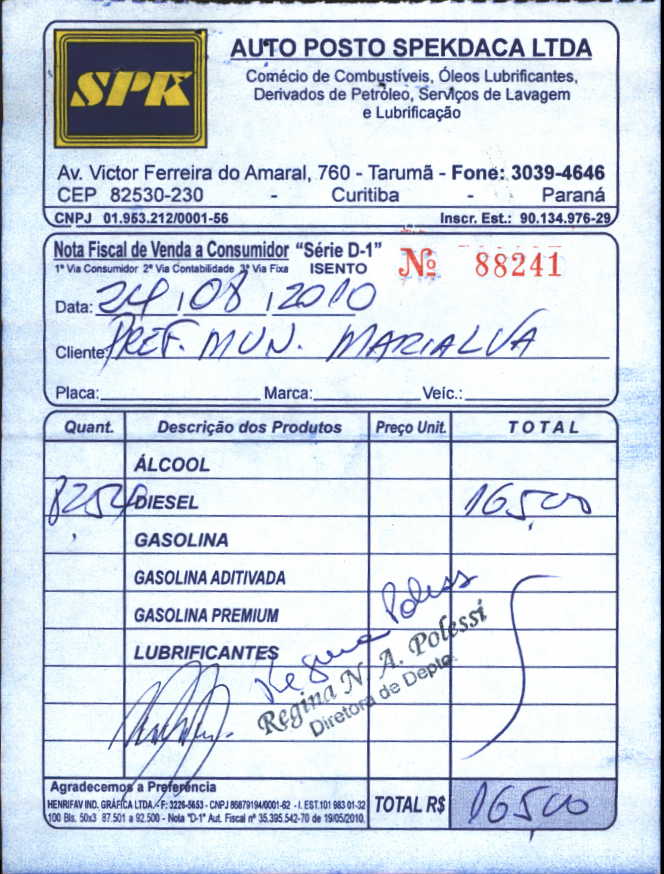 SPK
AUTO POSTO SPEKDACA LTDA
Comécio de Combustíveis, Óleos Lubrificantes,
Derivados de Petróleo, Serviços de Lavagem
e Lubrificação
Av. Victor Ferreira do Amaral, 760 - Tarumã - Fone: 3039-4646
CEP 82530-230 - Curitiba - Paraná
CNPJ 01.953.212/0001-56 Inscr. Est.: 90.134.976-29
Nota Fiscal de Venda a Consumidor "Série D-1" Nº 88241
1ª Via Consumidor 2ª Via Contabilidade 3ª Via Fixa ISENTO
Data: 24, 08, 2010
Cliente: PREF. MUN. MARIALVA
Placa: Marca: Veíc.:
Quant. Descrição dos Produtos Preço Unit. TOTAL
ÁLCOOL
DIESEL 165,00
GASOLINA
GASOLINA ADITIVADA
GASOLINA PREMIUM
LUBRIFICANTES
Regina Poless
Regina N. A. Polessi
Diretora de Depto.
Agradecemos a Preferência
HENRIFAV IND. GRÁFICA LTDA. - F: 3226-5653 - CNPJ 86879194/0001-62 - I. EST.101 983 01-32
100 Bls. 50x3 87.501 a 92.500 - Nota "D-1" Aut. Fiscal nº 35.395.542-70 de 19/05/2010.
TOTAL R$ 165,00